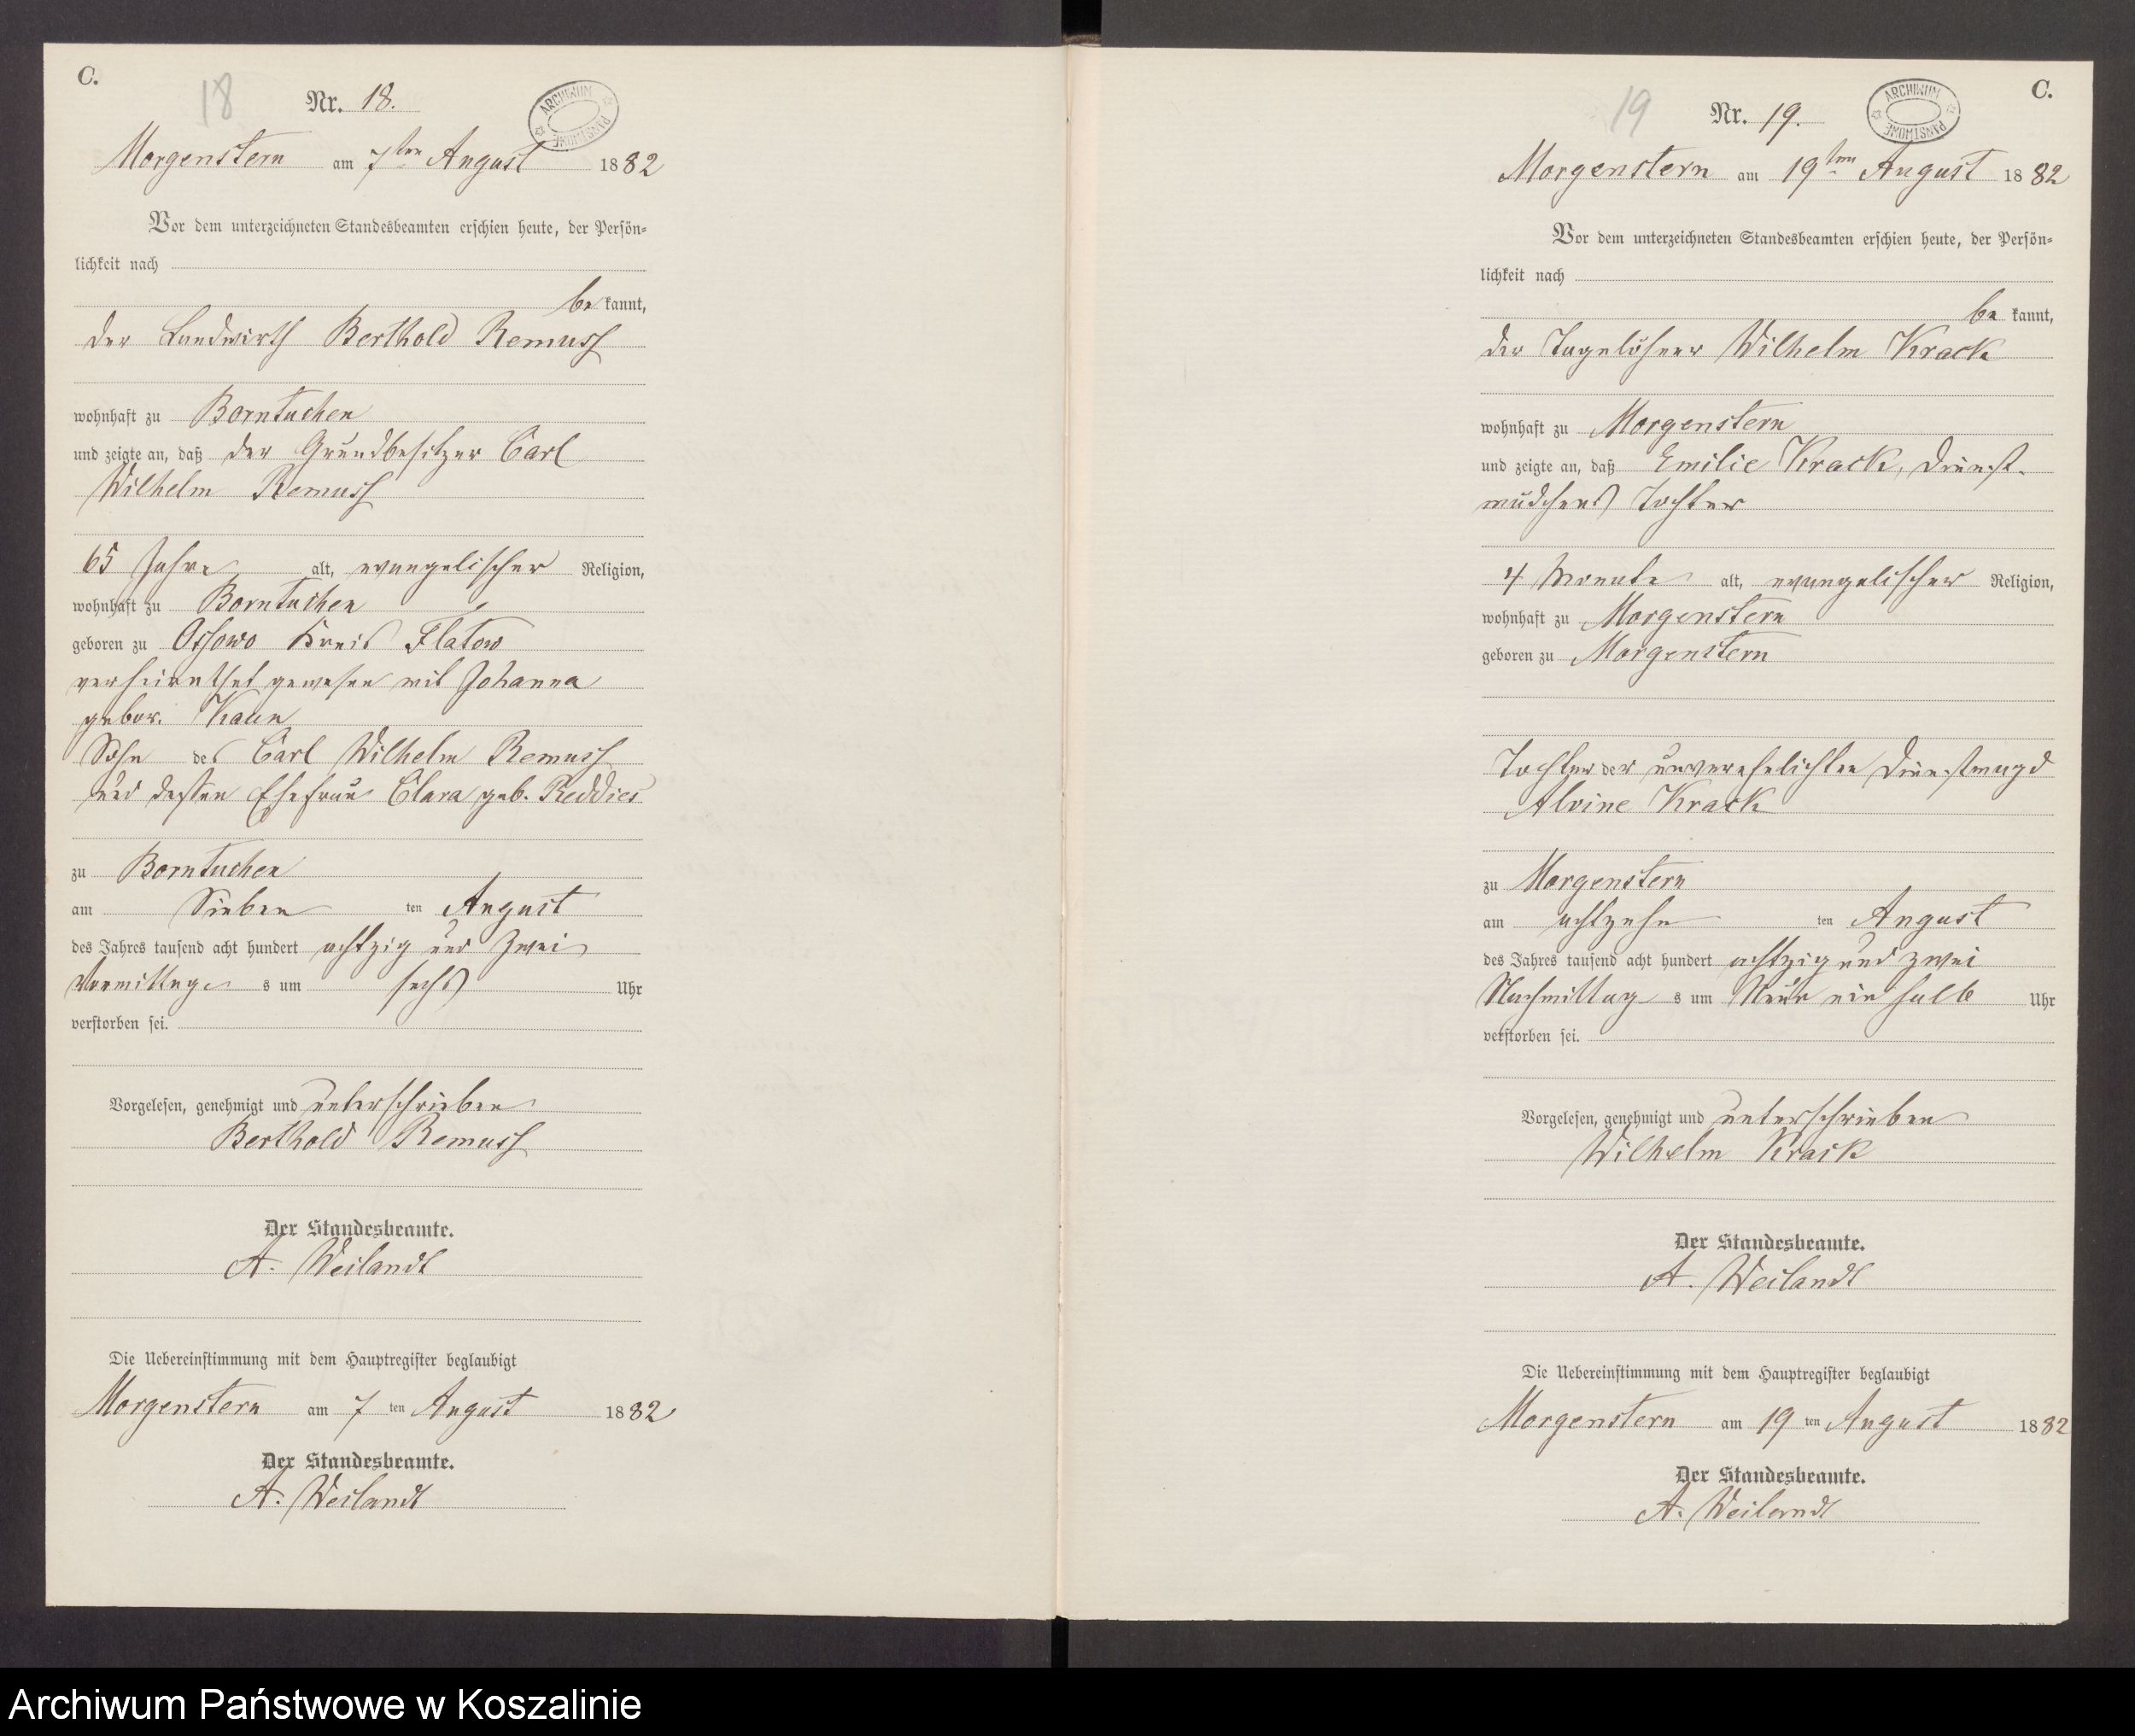 C.
18
Nr. 18.
ARCHIWUM PAŃSTWOWE
Morgenstern am 7ten August 1882
Vor dem unterzeichneten Standesbeamten erschien heute, der Persön-
lichkeit nach
be kannt,
der Landwirth Berthold Remuss
wohnhaft zu Borntuchen
und zeigte an, daß der Grundbesitzer Carl
Wilhelm Remuss
65 Jahre alt, evangelischer Religion,
wohnhaft zu Borntuchen
geboren zu Ossowo Kreis Flatow
verheirathet gewesen mit Johanna
gebor. Kaun
Sohn des Carl Wilhelm Remuss
und dessen Ehefrau Clara geb. Reddies
zu Borntuchen
am Sieben ten August
des Jahres tausend acht hundert achtzig und zwei
Vormittag s um sechs Uhr
verstorben sei.
Vorgelesen, genehmigt und unterschrieben
Berthold Remuss
Der Standesbeamte.
A. Weilandt
Die Uebereinstimmung mit dem Hauptregister beglaubigt
Morgenstern am 7 ten August 1882
Der Standesbeamte.
A. Weilandt
C.
19
Nr. 19.
ARCHIWUM PAŃSTWOWE
Morgenstern am 19ten August 1882
Vor dem unterzeichneten Standesbeamten erschien heute, der Persön-
lichkeit nach
be kannt,
der Tagelöhner Wilhelm Krack
wohnhaft zu Morgenstern
und zeigte an, daß Emilie Krack, Dienst-
mädchens Tochter
4 Monate alt, evangelischer Religion,
wohnhaft zu Morgenstern
geboren zu Morgenstern
Tochter der unverehelichten Dienstmagd
Alvine Krack
zu Morgenstern
am achtzehn ten August
des Jahres tausend acht hundert achtzig und zwei
Nachmittag s um Neun ein halb Uhr
verstorben sei.
Vorgelesen, genehmigt und unterschrieben
Wilhelm Krack
Der Standesbeamte.
A. Weilandt
Die Uebereinstimmung mit dem Hauptregister beglaubigt
Morgenstern am 19 ten August 1882
Der Standesbeamte.
A. Weilandt
Archiwum Państwowe w Koszalinie